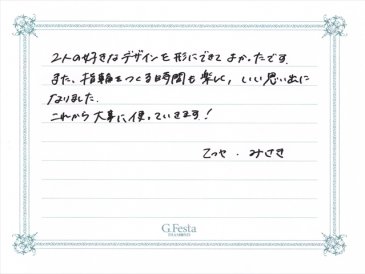 2人の好きなデザインを形にできてよかったです.
また、指輪をつくる時間も楽しく, いい思い出に
なりました.
これから大事に使っていきます!
てつや . みさき
G.Festa
DIAMOND